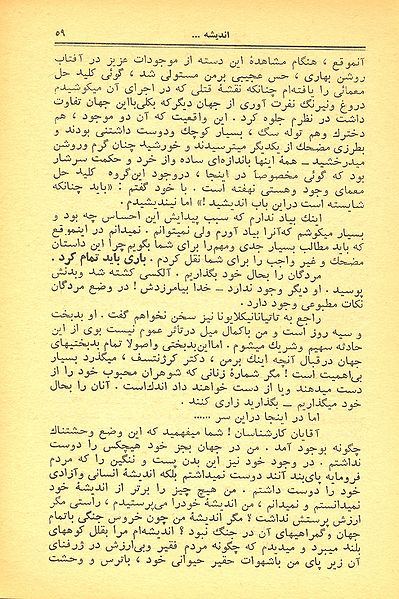 اندیشه ...
۵۹
آنموقع ، هنگام مشاهدهٔ این دسته از موجودات عزیز در آفتاب
روشن بهاری ، حس عجیبی برمن مستولی شد ، گوئی کلید حل
معمائی را یافته‌ام چنانکه نقشهٔ قتلی که در اجرای آن میکوشیدم
دروغ ونیرنگ نفرت آوری از جهان دیگرکه بکلی‌بااین جهان تفاوت
داشت در نظرم جلوه کرد . این واقعیت که آن دو موجود ، هم
دخترک وهم توله سگ ، بسیار کوچک ودوست داشتنی بودند و
بطرزی مضحک از یکدیگر میترسیدند و خورشید چنان گرم وروشن
میدرخشید ــ همهٔ اینها باندازه‌ای ساده واز خرد و حکمت سرشار
بود که گوئی مخصوصاً در اینجا ، دروجود این‌گروه کلید حل
معمای وجود وهستی نهفته است . با خود گفتم : «باید چنانکه
شایسته است دراین باب اندیشید !» اما نیندیشیدم .
اینک بیاد ندارم که سبب پیدایش این احساس چه بود و
بسیار میکوشم که‌آنرا بیاد آورم ولی نمیتوانم . نمیدانم در اینموقع
که باید مطالب بسیار جدی ومهم‌را برای شما بگویم‌چرا این داستان
مضحک و غیر واجب را برای شما نقل کردم . باری باید تمام کرد .
مردگان را بحال خود بگذاریم . آلکسی کشته شد وبدنش
پوسید . او دیگر وجود ندارد ــ خدا بیامرزدش ! در وضع مردگان
نکات مطبوعی وجود دارد .
راجع به تاتیانانیکلایونا نیز سخن نخواهم گفت . او بدبخت
و سیه روز است و من باکمال میل درتأثر عموم نیست بوی از این
حادثه سهیم وشریک میشوم . امااین‌بدبختی واصولا تمام بدبختیهای
جهان درقبال آنچه اینک برمن ، دکتر کرژنتسف ، میگذرد بسیار
بی‌اهمیت است ! مگر شمارهٔ زنانی که شوهران محبوب خود را از
دست میدهند ویا از دست خواهند داد اندک‌است . آنان را بحال
خود میگذاریم ــ بگذارید زاری کنند .
اما در اینجا دراین سر ......
آقایان کارشناسان ! شما میفهمید که این وضع وحشتناک
چگونه بوجود آمد . من در جهان بجز خود هیچکس را دوست
نداشتم . در وجود خود نیز این بدن پست و ننگین را که مردم
فرومایه پای‌بند آنند دوست نمیداشتم بلکه اندیشهٔ انسانی وآزادی
خود را دوست داشتم . من هیچ چیز را برتر از اندیشهٔ خود
نمیدانستم و نمیدانم ، من اندیشهٔ خودرا می‌پرستیدم ، راستی مگر
ارزش پرستش نداشت ؟ مگر اندیشهٔ من چون خروس جنگی باتمام
جهان وگمراهیهای آن در جنگ نبود ؟ اندیشه‌ام مرا بقلل کوههای
بلند میبرد و میدیدم که چگونه مردم فقیر وبی‌ارزش در ژرفنای
آن زیر پای من باشهوات حقیر حیوانی خود ، باترس و وحشت